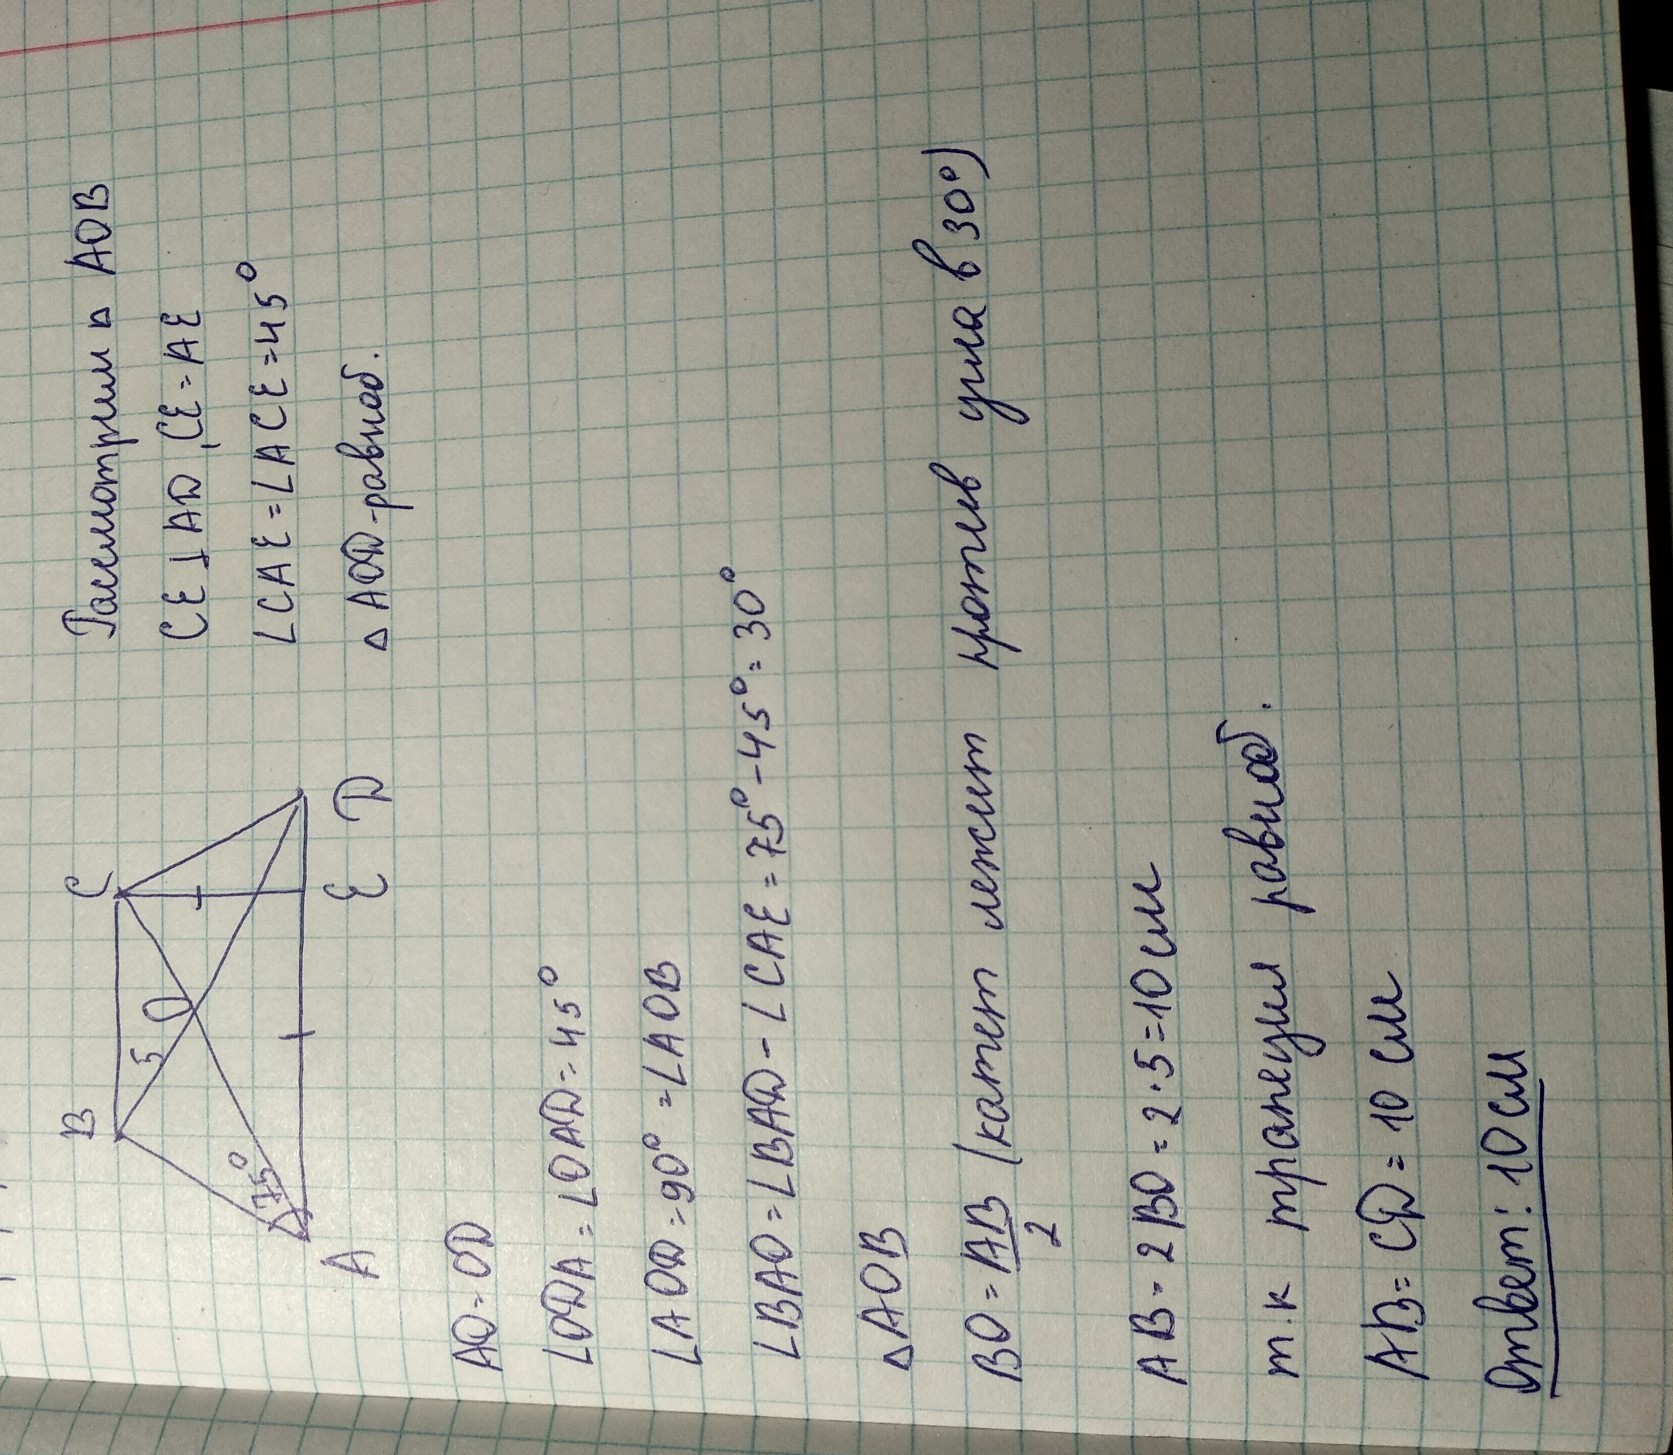 B
C
5
O
75°
A
E
D
Рассмотрим ⊿ AOB
CE ⊥ AD, CE = AE
∠CAE = ∠ACE = 45°
△ AOD - равноб.
AO = OD
∠ODA = ∠OAD = 45°
∠AOD = 90° = ∠AOB
∠BAO = ∠BAD - ∠CAE = 75° - 45° = 30°
△AOB
BO = AB/2 (катет лежит против угла в 30°)
AB = 2BO = 2·5 = 10 см
т.к трапеция равноб.
AB = CD = 10 см
Ответ: 10 см